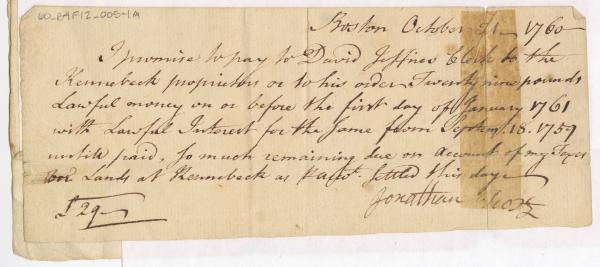 60-24F12-005-1A
Boston October 21 - 1760 -
I promise to pay to David Jeffries Clerk to the
Kennebeck proprietors or to his order Twenty nine pounds
Lawful money on or before the first day of January 1761
with Lawful Interest for the Same from Septem. 18. 1759
untill paid, So much remaining due on account of my Taxes
on Lands at Kennebeck as settled this day
£29
Jonathan